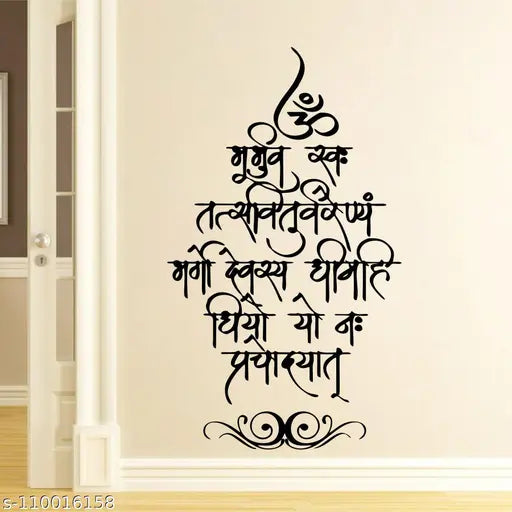 ॐ
भूर्भुव स्वः
तत्सवितुर्वरेण्यं
भर्गो देवस्य धीमहि
धियो यो नः
प्रचोदयात्
s-110016158